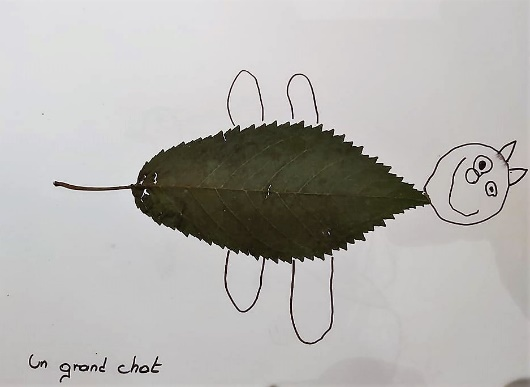 Un grand chat